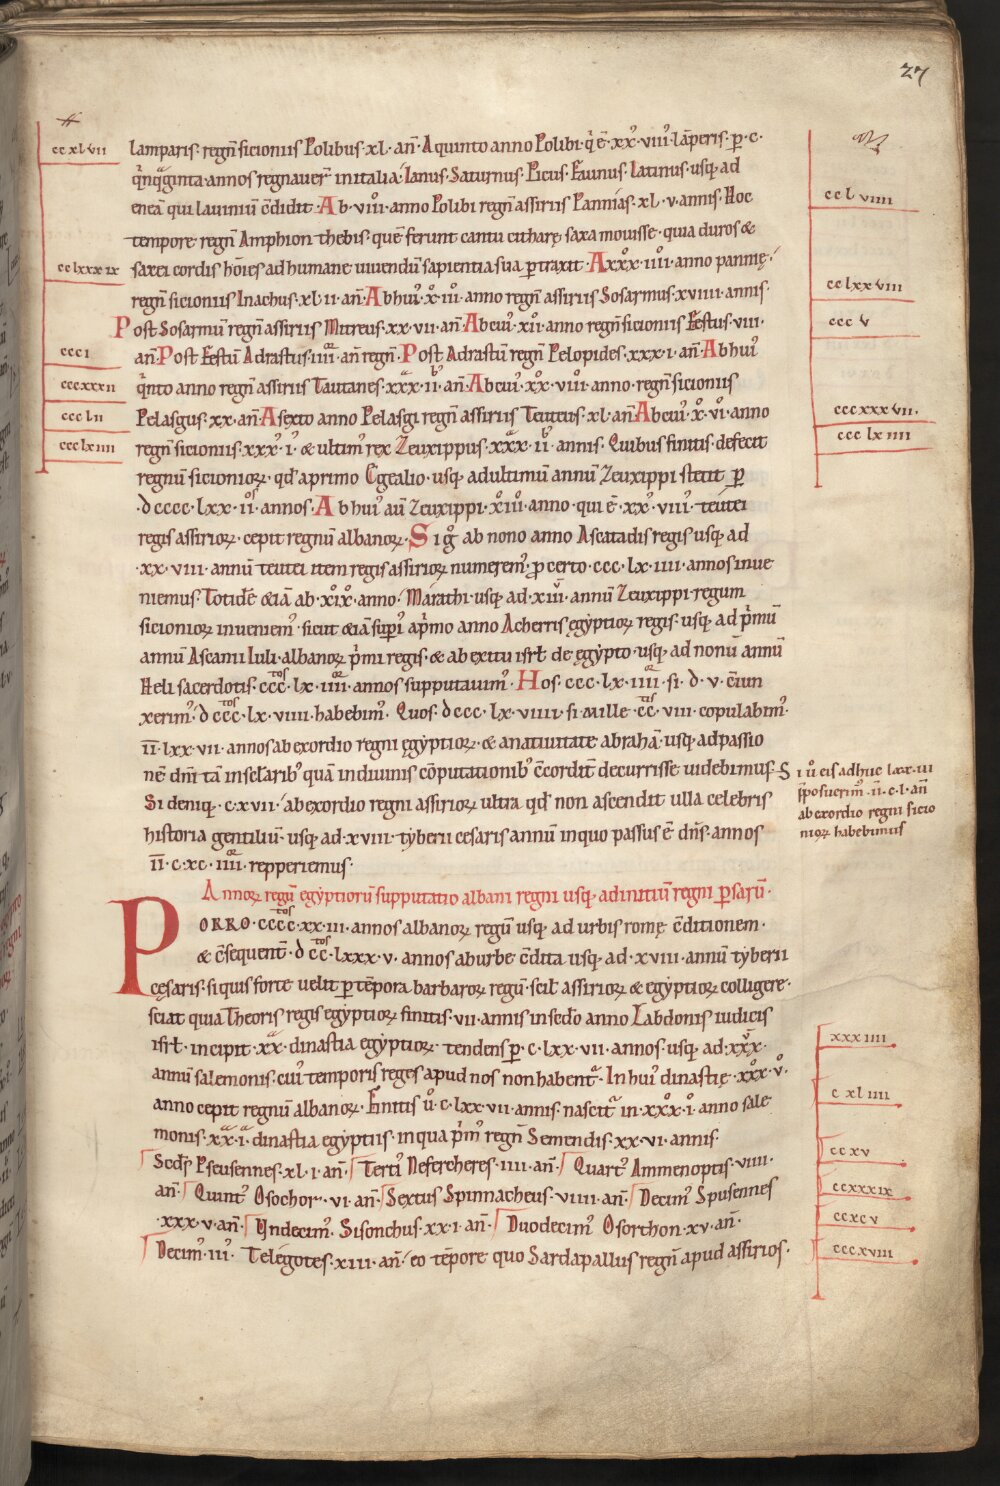 27
cc xl vii
cc lxxx ix
ccc i
ccc xxx ii
ccc lii
ccc lx iiii
lamparis· regn̄ sicioniis Polibus· xl· an̄· A quinto anno Polibi· q̇ ē· xx· viii· lāperis· ꝑ· c·
q̇nq̈ginta· annos regnauer̄ in italia· Ianus· Saturnus· Picus· Faunus· Latinus· usq; ad
eneā qui lauiniū c̄didit· Ab· viii· anno Polibi regn̄ assiriis Pannias· xl· v· annis· Hoc
tempore regn̄ Amphion thebis· quē ferunt cantu citharę saxa mouisse· quia duros &
saxei cordis hōies ad humane uiuendū sapientia sua ꝑtraxit· A xxx· iiii· anno pannię·
regn̄ sicioniis Inachus· xl· ii· an̄· Ab hui᾽ x· iii· anno regn̄ assiriis Sosarmus· xviiii· annis·
Post Sosarmū regn̄ assiriis Mitreus· xx· vii· an̄· Ab cui᾽ xii· anno regn̄ sicioniis Festus· viii·
an̄· Post Festū Adrastus· iiii· an̄ regn̄· Post Adrastū regn̄ Pelopides· xxx· i· an̄· Ab hui᾽
q̇nto anno regn̄ assiriis Tautanes· xxx· ii· an̄· Ab cui᾽ xx· viii· anno· regn̄ sicioniis
Pelasgus· xx· an̄· A sexto anno Pelasgi regn̄ assiriis Teuteus· xl· an̄· Ab cui᾽ x· vi· anno
regn̄ sicioniis· xxx· i· & ultim᾽ rex Zeuxippus· xxx· ii· annis· Quibus finitis· defecit
regnū sicionioꝝ· qd᾽ a primo Egealio· usq; ad ultimū annū Zeuxippi stetit ꝑ
·dcccc· lxx· ii· annos· Ab hui᾽ aū Zeuxippi· xiii· anno· qui ē· xx· viii· teutei
regis assirioꝝ· cepit regnū albanoꝝ· Sigͦ ab nono anno Ascatadis regis usq; ad
·xx· viii· annū teutei item regis assirioꝝ numerem᾽· ꝓ certo· ccc· lx· iiii· annos inue
niemus· Totidē &iā ab· xix· anno· Marathi· usq; ad· xiii· annū Zeuxippi· regum
sicionioꝝ inueniem᾽· sicut &iā suꝑi᾽ a p̄mo anno Acherris ęgyptioꝝ regis· usq; ad p̄mū
annū Ascanii Iuli· albanoꝝ p̄mi regis· & ab exitu isrl̄ de ęgypto· usq; ad nonū annū
Heli sacerdotis· ccc· lx· iiii· annos supputauim᾽· Hos· ccc· lx· iiii· si· d· v· c̄iun
xerim᾽· dccc· lx· viiii· habebim᾽· Quos· dccc· lx· viiii· si mille· cc· viii· copulabim᾽·
ii· lxx· vii· annos ab exordio regni ęgyptioꝝ· & a natiuitate abrahā· usq; ad passio
nē dn̄i tā in sclarib᾽ quā in diuinis cōputationib᾽ c̄cordit̄ decurrisse uidebimus·
Si deniq; c· xvii· ab exordio regni assirioꝝ ultra qd᾽ non ascendit ulla celebris
historia gentiliū· usq; ad· xviii· tyberii cesaris annū in quo passus ē dn̄s· annos
ii· c· xc· iiii· repperiemus·
Annoꝝ regū egyptiorū supputatio albani regni usq; ad initiū regni ꝑsarū·
PORRO· cccc· xx· iii· annos albanoꝝ regū usq; ad urbis romę c̄ditionem·
& c̄sequent̄· dcc· lxxx· v· annos ab urbe c̄dita usq; ad· xviii· annū tyberii
cęsaris· si quis forte uelit ꝑ tēpora barbaroꝝ regū· scil᾽ assirioꝝ & egyptioꝝ colligere·
sciat quia Theoris regis egyptioꝝ finitis· vii· annis in scdo anno Labdonis iudicis
isrl̄· incipit· xx· dinastia egyptioꝝ· tendens ꝑ· c· lxx· vii· annos· usq; ad· xxx·
annū salemonis· cui᾽ temporis reges apud nos non habent᾽· In hui᾽ dinastię· xxx· v·
anno cepit regnū albanoꝝ· Finitis u̇· c· lxx· vii· annis· nascit᾽ in· xxx· i· anno sale
monis· xx· i· dinastia egyptiis· in qua p̄m᾽ regn̄ Semendis· xx· vi· annis·
Scds̄ Pseusennes· xl· i· an̄· Terti᾽ Nefercheres· iiii· an̄· Quart᾽ Ammenoptis· viiii·
an̄· Quint᾽ Osochor· vi· an̄· Sextus Spinnacheus· viiii· an̄· Decim᾽ Spusennes
·xxx· v· an̄· Yndecim᾽· Sisonchus· xx· i· an̄· Duodecim᾽ Osorthon· xv· an̄·
Decim᾽· iii᾽· Telegotes· xiii· an̄· eo tēpore quo Sardapallus regn̄ apud assirios·
cc l viiii
cc lxx viii
ccc v
ccc xxx vii·
ccc lx iiii
Si u̇ eis adhuc lxx· iii
p̄posuerim᾽· ii· c· l· an̄
ab exordio regni sicio
nioꝝ habebimus
xxx iiii
c xl iiii
cc xv
cc xxx ix
cc xc v
ccc xviii